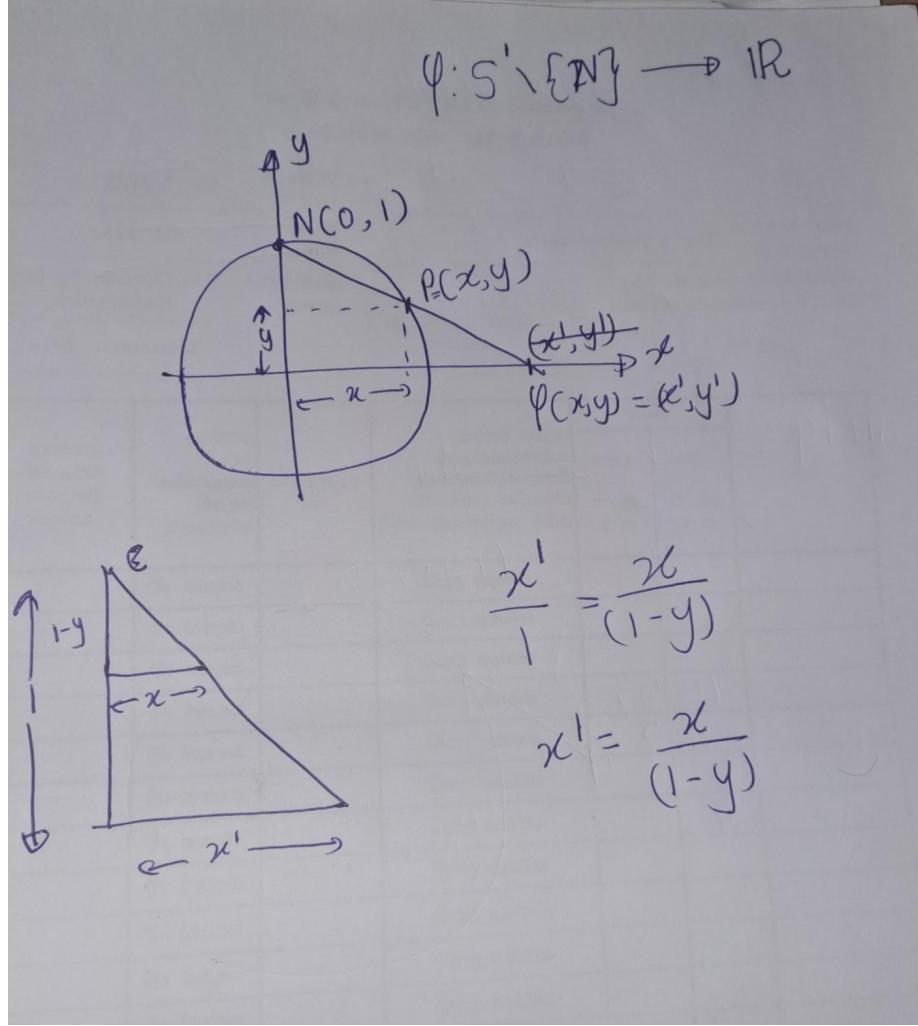 φ: S¹∖{N} → ℝ
y
N(0,1)
P=(x,y)
(x',y') x
y
x
φ(x,y) = (x',y')
1-y
1
x
x'
x'/1 = x/(1-y)
x' = x/(1-y)